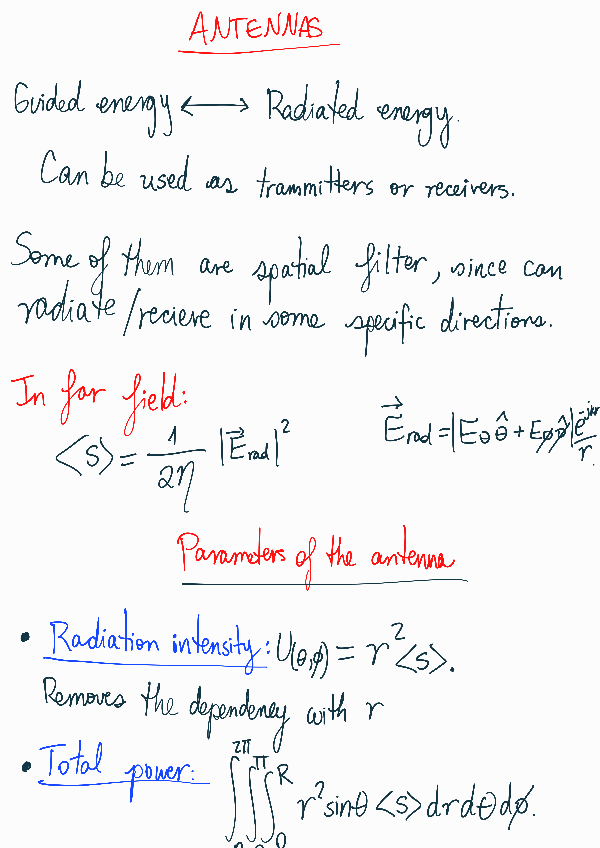 ANTENNAS
Guided energy ⟷ Radiated energy.
Can be used as trammitters or receivers.
Some of them are spatial filter, since can
radiate/recieve in some specific directions.
In far field:
⟨S⟩ = 1/2η |E⃗rad|² E⃗rad = |Eθ θ̂ + Eφ φ̂| e^-jkr/r
Parameters of the antenna
• Radiation intensity: U(θ,φ) = r² ⟨S⟩.
Removes the dependency with r
• Total power: ∫₀^2π ∫₀^π ∫₀^R r² sinθ ⟨S⟩ dr dθ dφ.